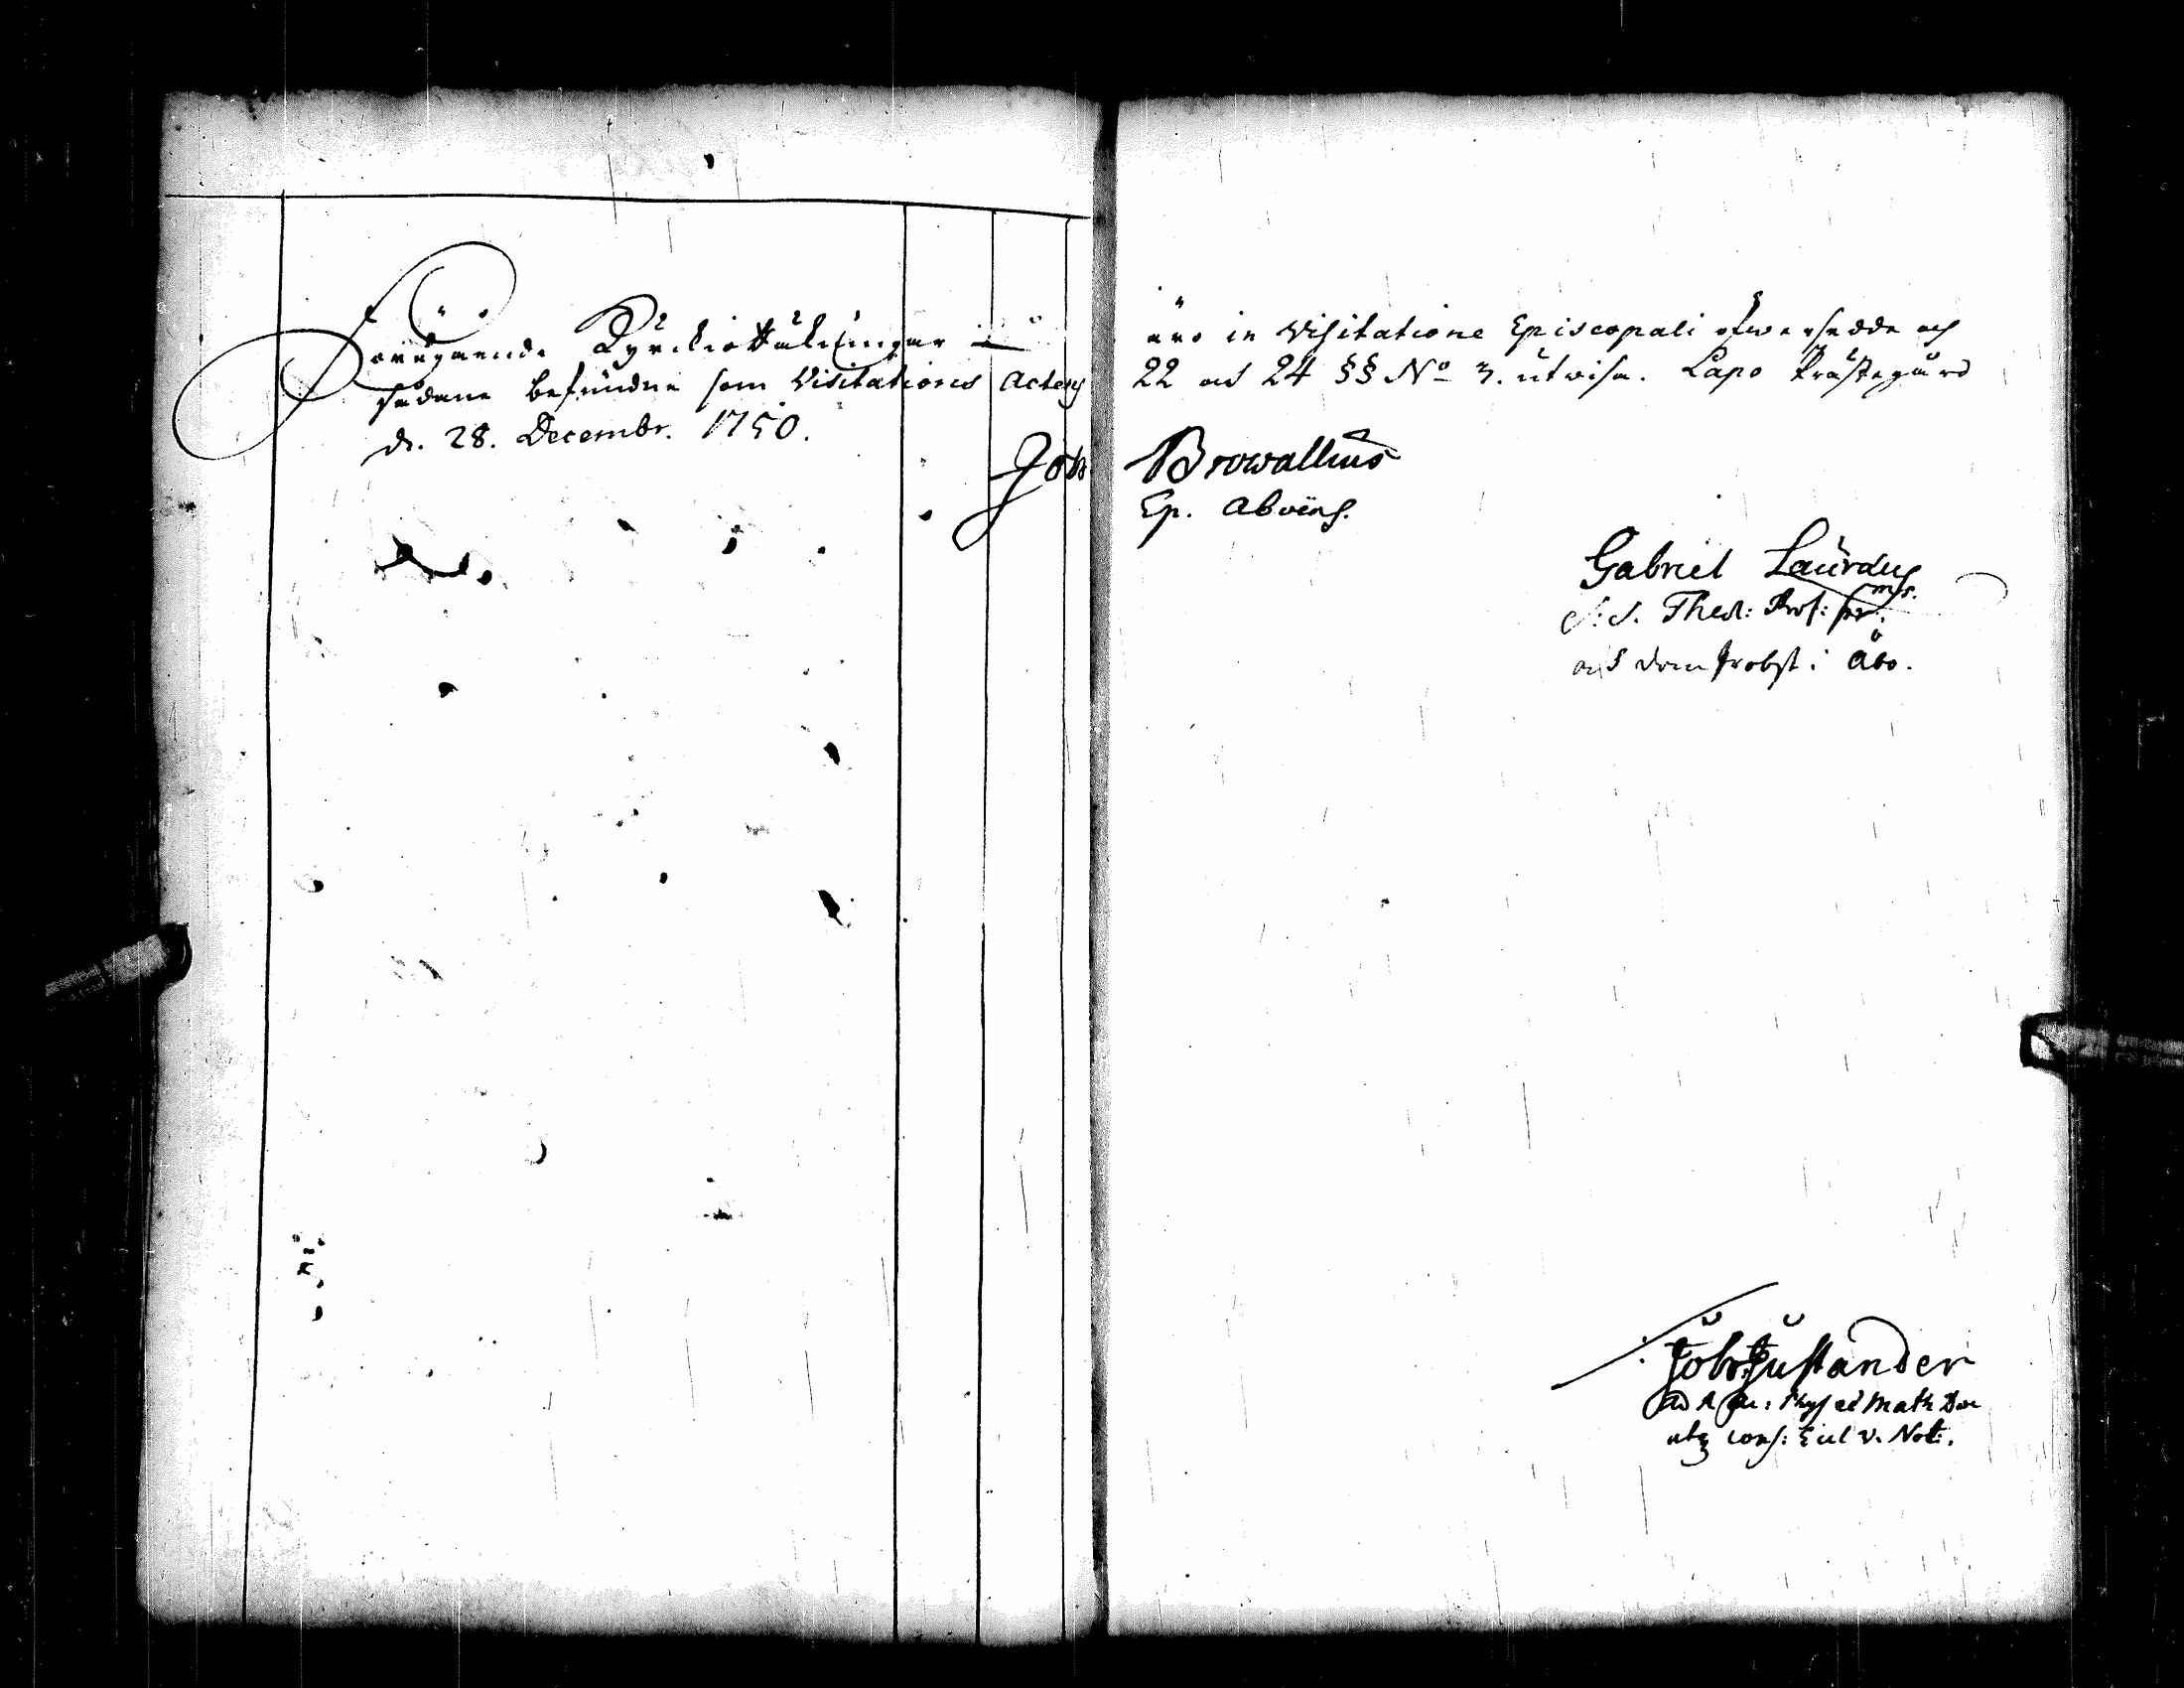 Föregående Kyrckioräkningar äro in Visitatione Episcopali öfwersedde och
sådane befundne som Visitationes Actens 22 och 24 §§ No 3. utwisa. Lapo Prästegård
d. 28. Decembr. 1750.
Joh Browallius
Ep. Aboëns.
Gabriel Lauræus
S. S. Theol: Prof: pr:
och Dom Probst i Åbo.
Joh: Justander
Phys et Math Doc
atq cons: Eccl v. Not:.